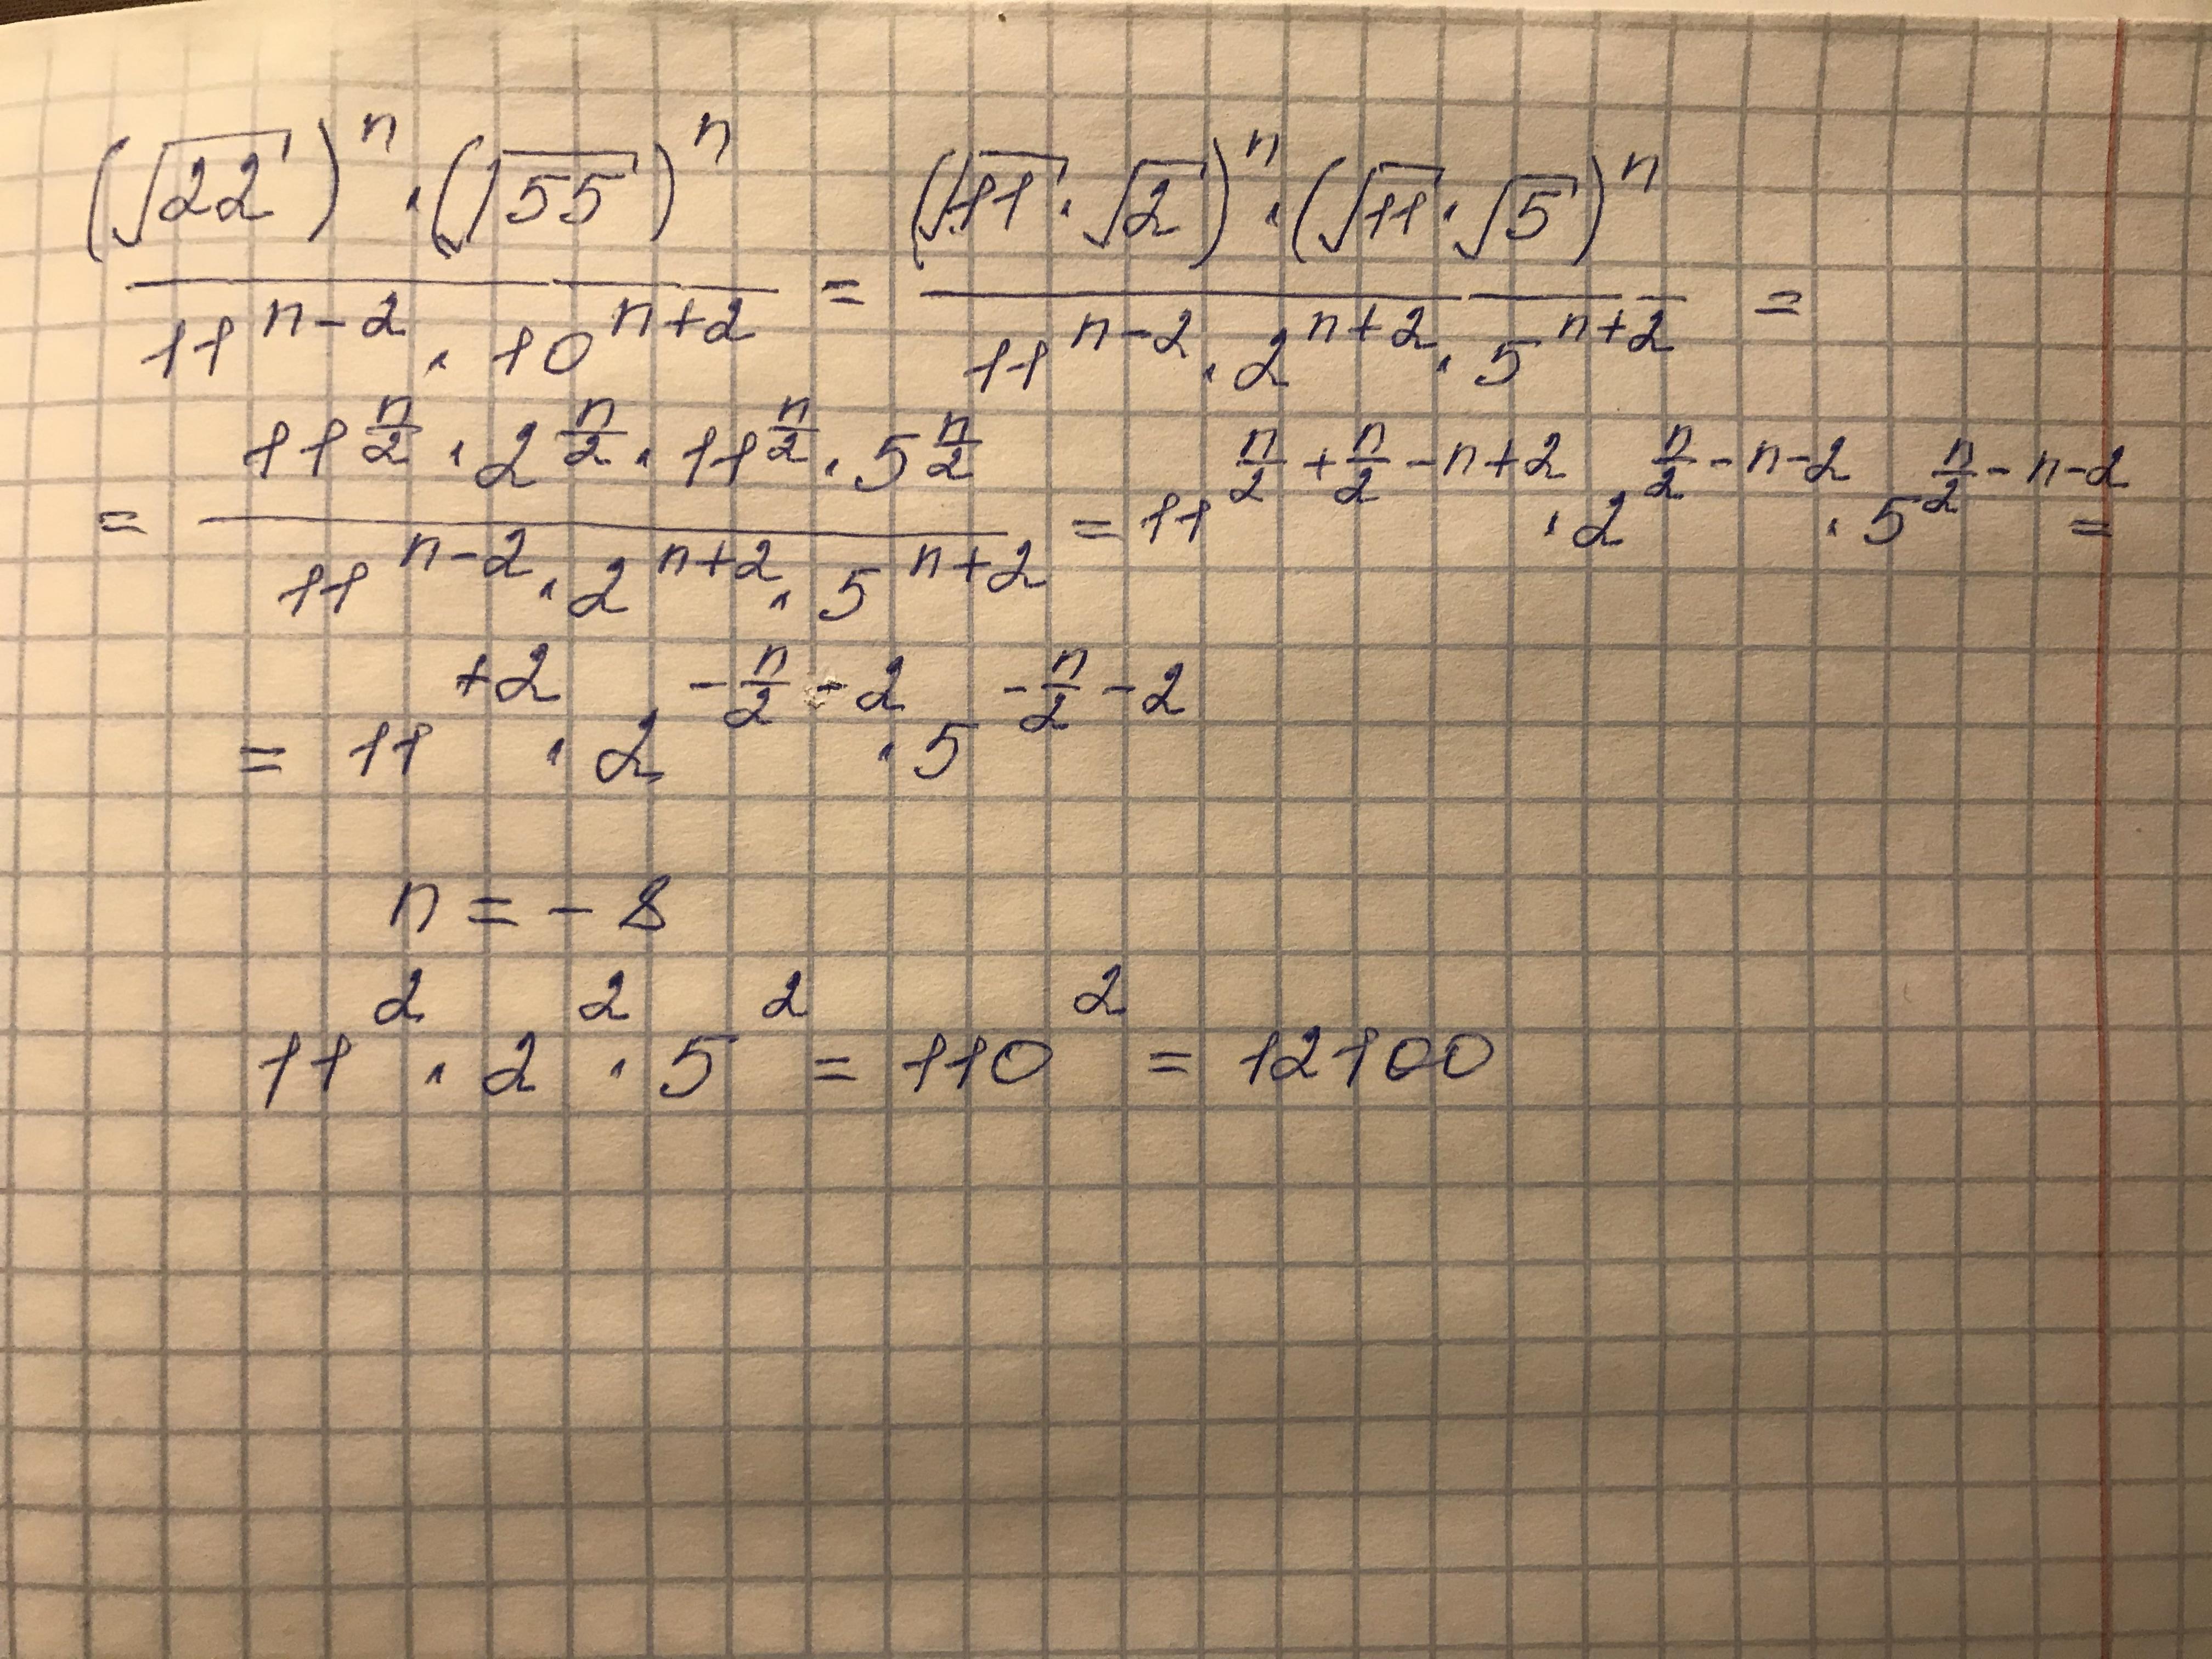 (√22)^n · (√55)^n / 11^(n-2) · 10^(n+2) = (√11 · √2)^n · (√11 · √5)^n / 11^(n-2) · 2^(n+2) · 5^(n+2) =
= 11^(n/2) · 2^(n/2) · 11^(n/2) · 5^(n/2) / 11^(n-2) · 2^(n+2) · 5^(n+2) = 11^(n/2 + n/2 - n + 2) · 2^(n/2 - n - 2) · 5^(n/2 - n - 2) =
= 11^(+2) · 2^(-n/2 - 2) · 5^(-n/2 - 2)
n = - 8
11^2 · 2^2 · 5^2 = 110^2 = 12100